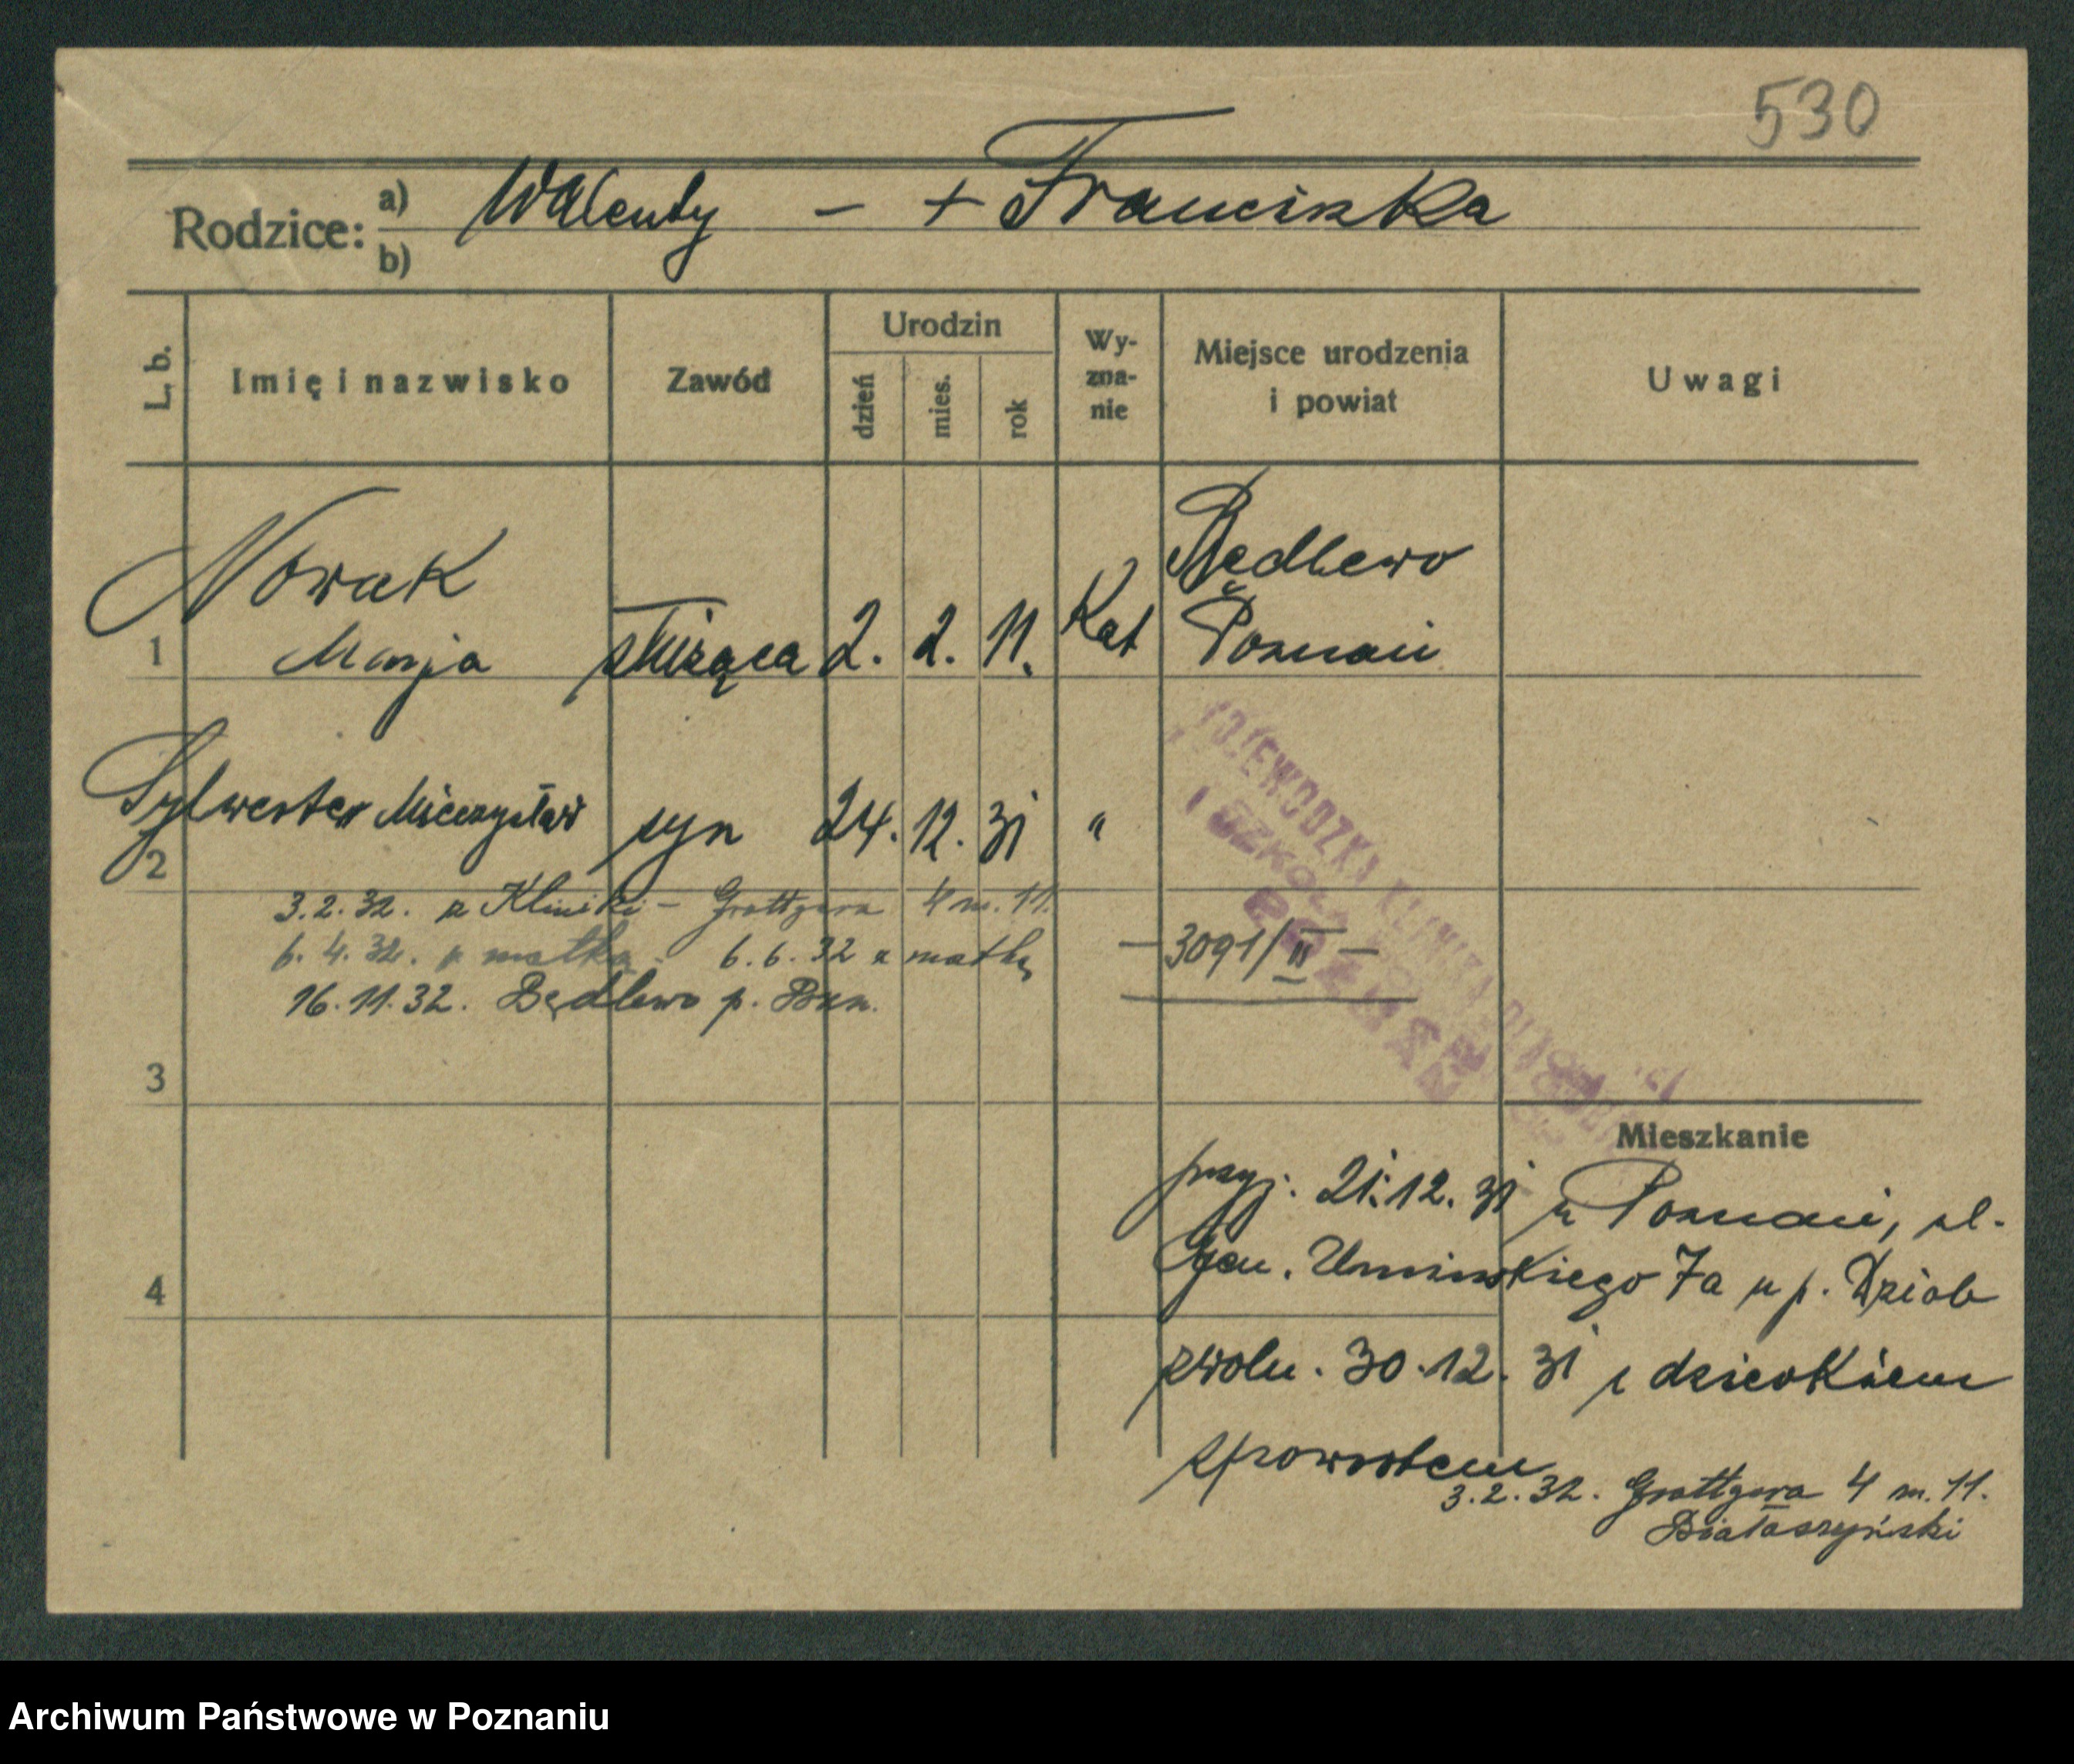 530
Rodzice: a) Walenty – + Franciszka
b)
L. b.
Imię i nazwisko
Zawód
Urodzin
dzień
mies.
rok
Wy-
zna-
nie
Miejsce urodzenia
i powiat
Uwagi
Nowak
Będlewo
1 Marja służąca 2. 2. 11. Kat Poznań
2 Sylwester Mieczysław syn 24. 12. 31 "
3.2.32. z Kliniki – Grottgera 4 m. 11.
6.4.32. z matką – 6.6.32 z matką
– 3091/II –
16.11.32. Będlewo p. Pzn.
WOJEWÓDZKA KLINIKA
I SZKOŁA
POZNAŃ
3
Mieszkanie
przyj. 21.12.31 z Poznań, ul.
Gen. Umińskiego 7a u p. Dziob
4
zwoln. 30.12.31 z dzieckiem
zpowrotem
3.2.32. Grottgera 4 m. 11.
Białaszyński
Archiwum Państwowe w Poznaniu